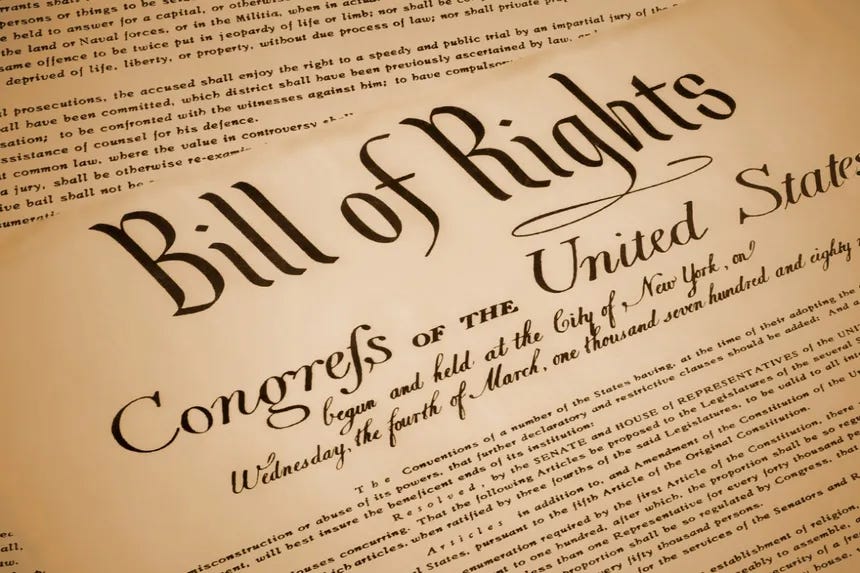 rrants shall
persons or things to be se
e held to answer for a capital, or otherwi
the land or Naval forces, or in the Militia, when in actu
same offence to be twice put in jeopardy of life or limb; nor shall be co
deprived of life, liberty, or property, without due process of law; nor shall private prope
l prosecutions, the accused shall enjoy the right to a speedy and public trial by an impartial jury of the
all have been committed, which district shall have been previously ascertained by law, and
sation; to be confronted with the witnesses against him; to have compulsor
ssistance of counsel for his defence.
t common law, where the value in controversy shall
a jury, shall be otherwise re-exami
ive bail shall not be
numerati
Bill of Rights
Congreſs OF THE United States
begun and held at the City of New York, on
Wednesday, the fourth of March, one thousand seven hundred and eighty
The Conventions of a number of the States having, at the time of their adopting the
misconstruction or abuse of its powers, that further declaratory and restrictive clauses should be added: And
ment, will best insure the beneficent ends of its institution:
Resolved, by the SENATE and HOUSE of REPRESENTATIVES of the UNI
ouses concurring. That the following Articles be proposed to the Legislatures of the several S
hich articles, when ratified by three fourths of the said Legislatures, to be valid to all int
Articles in addition to, and Amendment of the Constitution of the Un
l States, pursuant to the fifth Article of the Original Constitution.
enumeration required by the first Article of the Constitution, there
to one hundred, after which, the proportion shall be so reg
less than one Representative for every forty thousand pe
shall be so regulated by Congress, that
ery fifty thousand persons.
for the services of the Senators and R
establishment of religion,
eably to assemble,
security of a free
all,